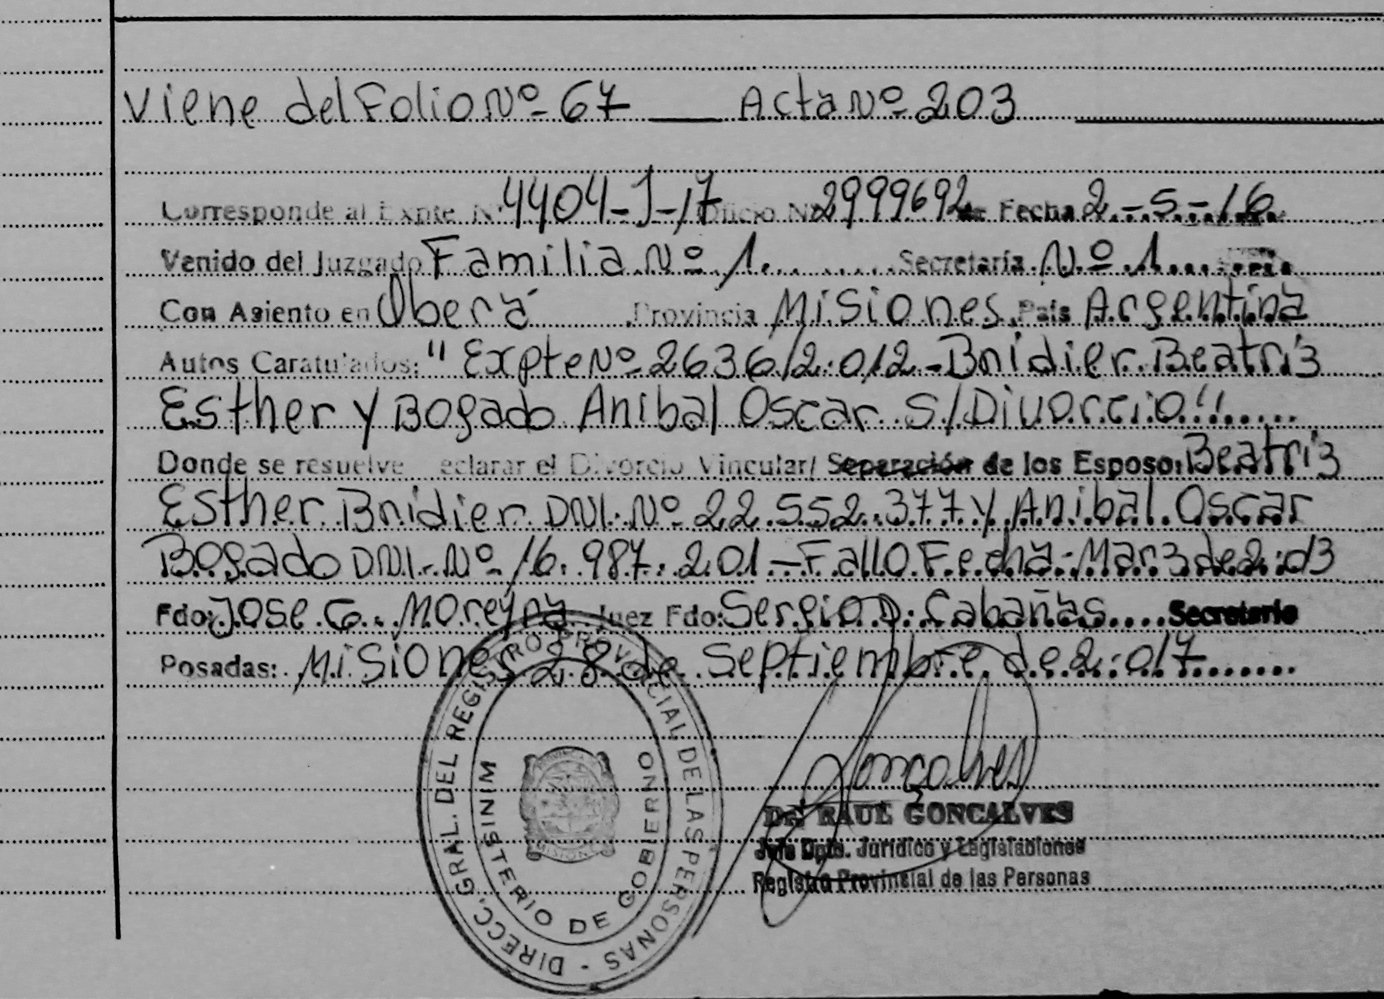 Viene del Folio Nº 67 ___ Acta Nº 203
Corresponde al Expte. Nº 4404-J-17 Oficio Nº 2999692 de Fecha 2-5-16
Venido del Juzgado Familia Nº 1. Secretaría Nº 1
Con Asiento en Oberá Provincia Misiones País Argentina
Autos Caratulados: "Expte Nº 2636/2.012 - Bnidier Beatriz
Esther y Bogado Anibal Oscar S/Divorcio"
Donde se resuelve eclarar el Divorcio Vincular/ Separación de los Esposo: Beatriz
Esther Bnidier DNI. Nº 22.552.377 y Anibal Oscar
Bogado DNI. Nº 16.987.201 - Fallo Fecha: Mar 3 de 2.013
Fdo: Jose G. Moreyra Juez Fdo: Sergio D. Cabañas Secretario
Posadas: Misiones 28 de Septiembre de 2.017
DIRECC. GRAL. DEL REGISTRO PROVINCIAL DE LAS PERSONAS -
MINISTERIO DE GOBIERNO
Gonçalves
Dr. RAUL GONCALVES
Jefe Dpto. Jurídico y Legislaciones
Registro Provincial de las Personas